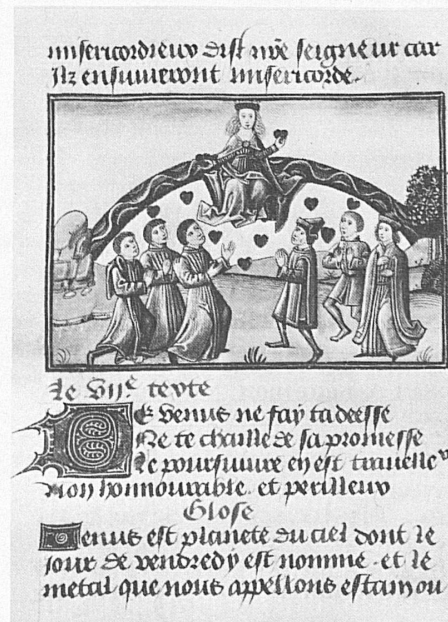 misericordieux dist nr̄e seigneur car
Ilz ensuiueront misericorde.
Le viie texte
De Venus ne fay ta deesse
Ne te chaille de sa promesse
Le poursuiure en est trauelleux
Non honnourable et perilleux
Glose
Venus est planete du ciel dont le
Jour de vendredy est nomme et le
metal que nous appellons estain ou